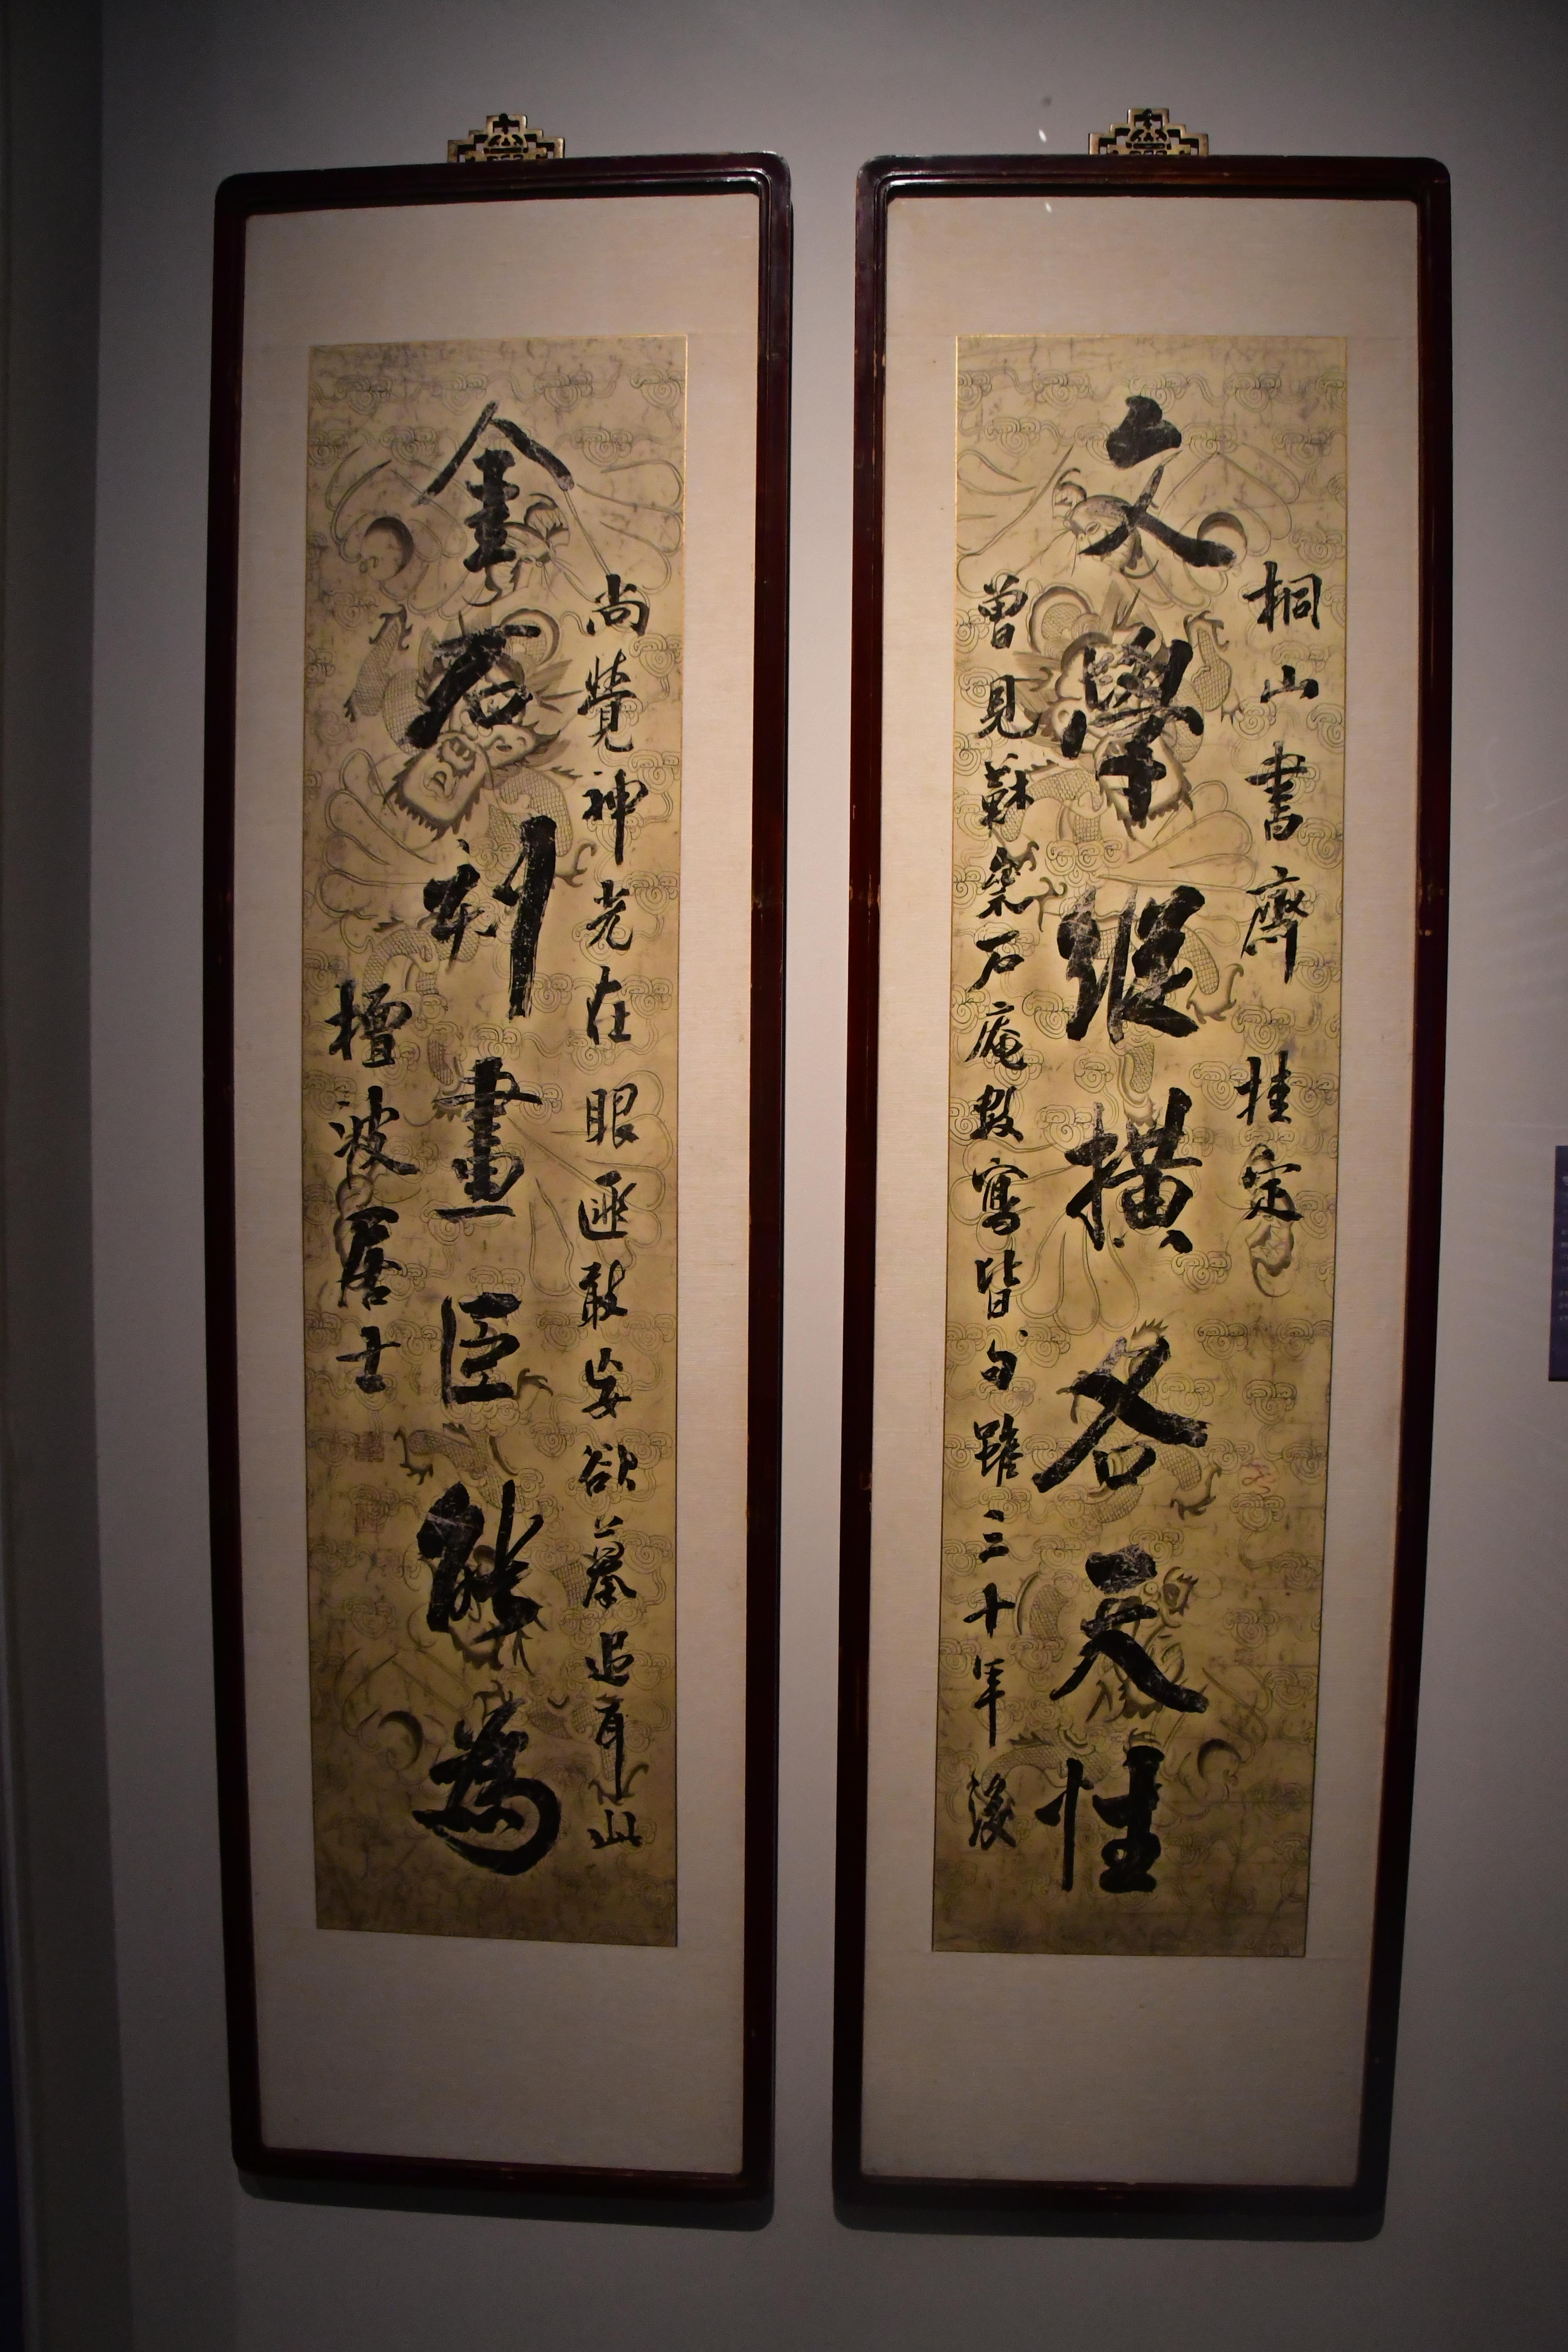 桐山書齋 挂定
文學縱橫各天性
曾見蘇石庵數寫皆句雖三十年後
尚覺神光在眼匪敢妄欲摹追耳此
金石刻畫臣能為
檀波居士